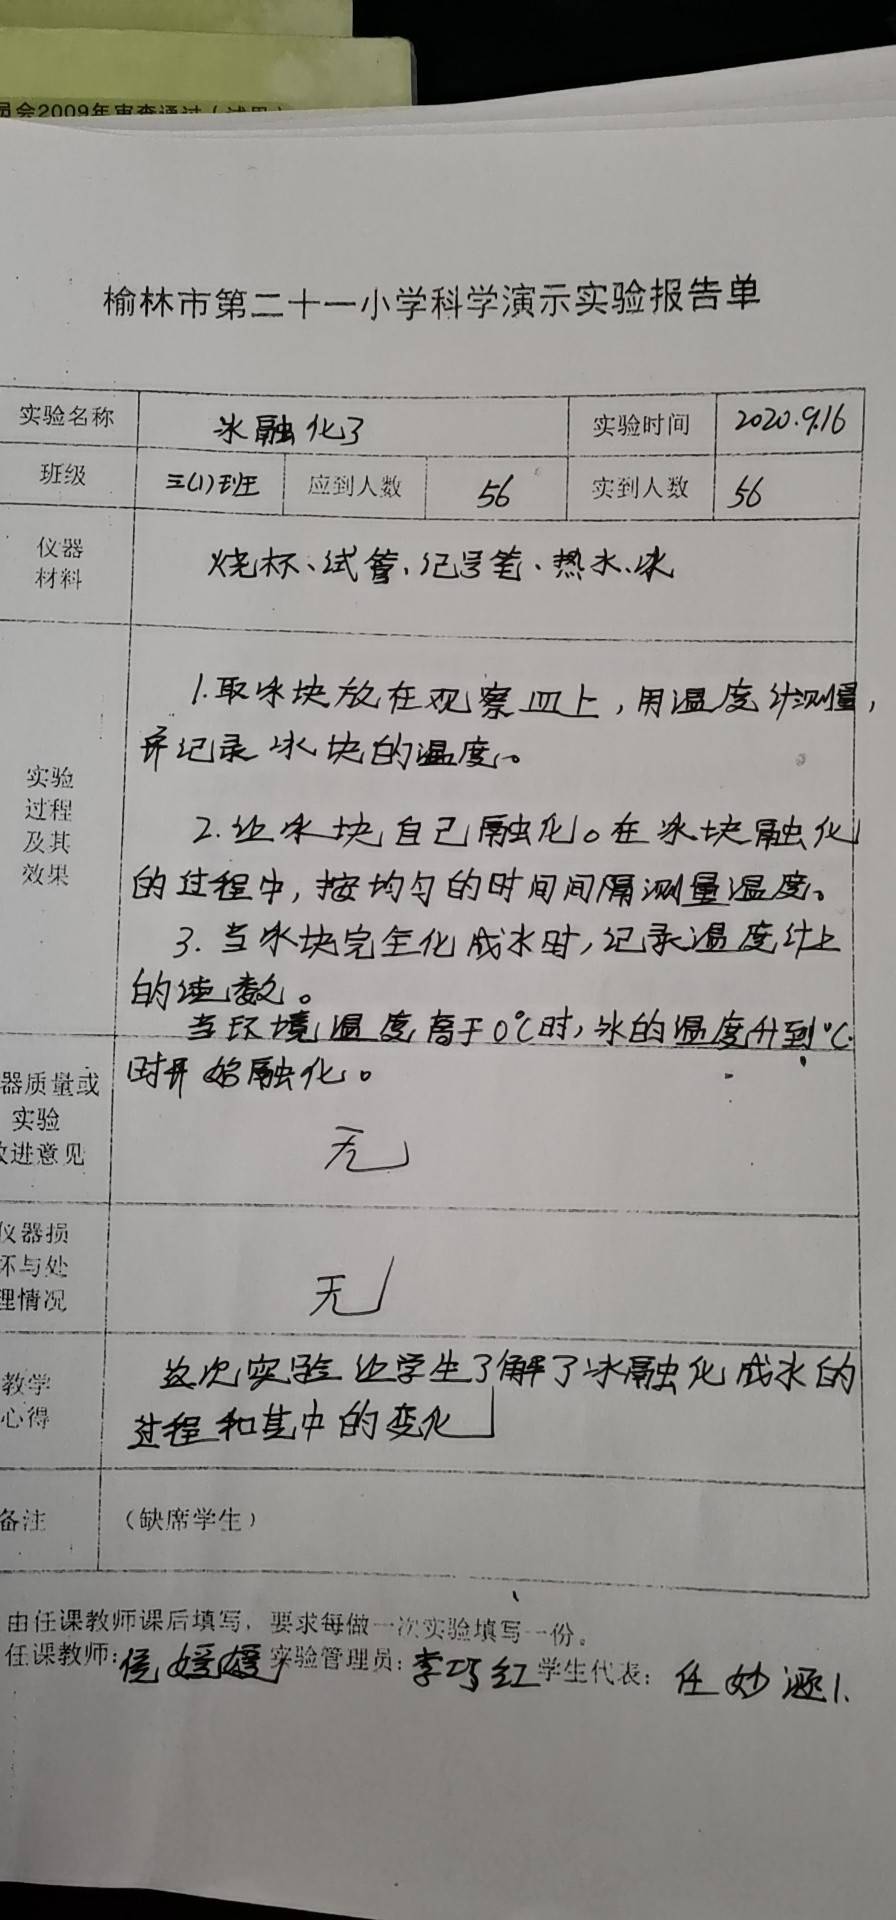 员会2009年审查通过（试用）
榆林市第二十一小学科学演示实验报告单
实验名称 冰融化了 实验时间 2020.9.16
班级 三(1)班 应到人数 56 实到人数 56
仪器
材料
烧杯、试管、记号笔、热水、冰
1.取冰块放在观察皿上，用温度计测量，
并记录冰块的温度。
实验
过程
及其
效果
2.让冰块自己融化。在冰块融化
的过程中，按均匀的时间间隔测量温度。
3.当冰块完全化成水时，记录温度计上
的读数。
当环境温度高于0℃时，冰的温度升到℃
时开始融化。
器质量或
实验
改进意见
无
仪器损
坏与处
理情况
无
教学
心得
这次实验让学生了解了冰融化成水的
过程和其中的变化
备注 （缺席学生）
由任课教师课后填写，要求每做一次实验填写一份。
任课教师：媛媛 实验管理员：李巧红 学生代表：任妙涵